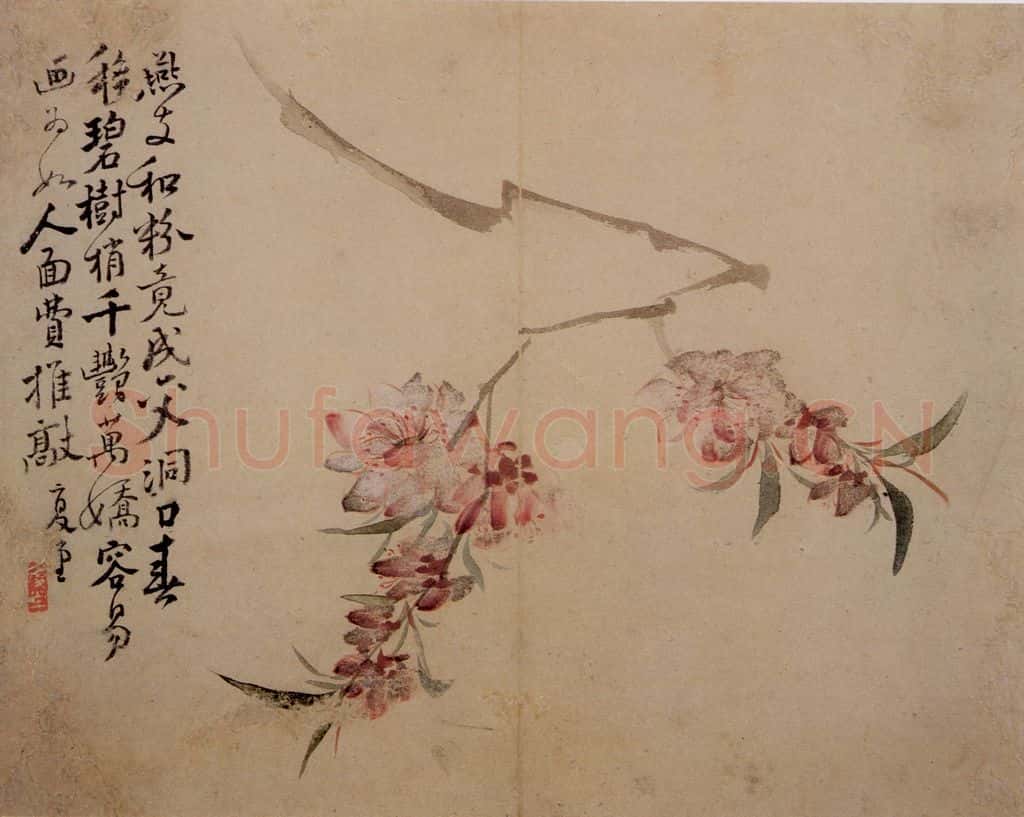 燕支和粉竟成交洞口春
移碧樹梢千豔萬嬌容易
画為如人面費推敲 复堂
Shufawang.CN